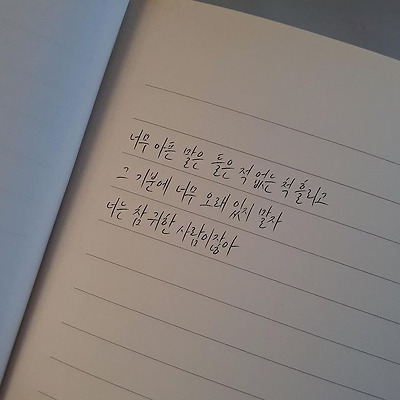 너무 아픈 말은 들은 적 없는 척 흘리고
그 기분에 너무 오래 있지 말자
너는 참 귀한 사람이잖아